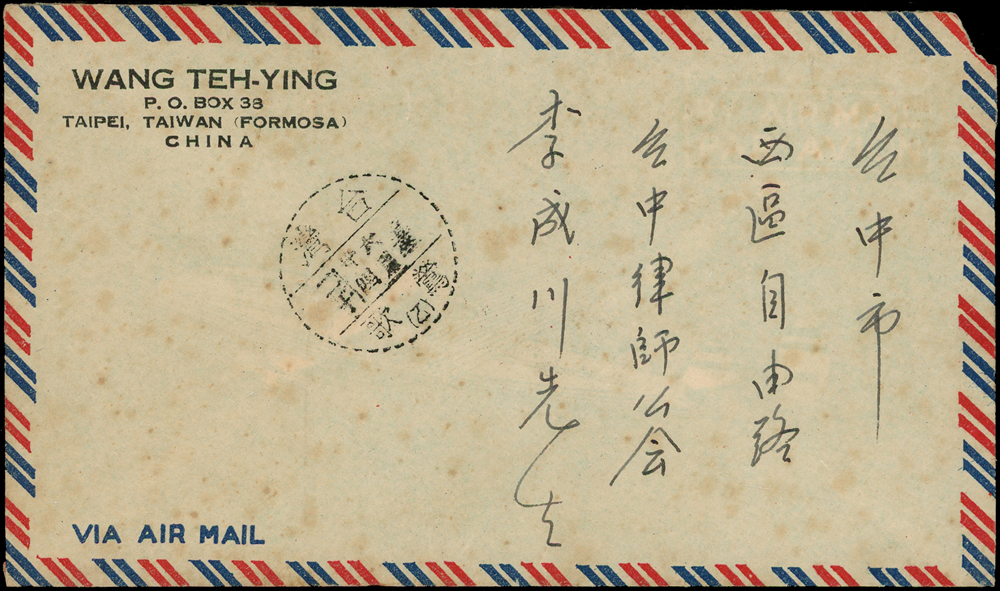 WANG TEH-YING
P. O. BOX 38
TAIPEI, TAIWAN (FORMOSA)
CHINA
台中市
西區自由路
台中律師公会
李成川先生
台灣
鶯歌
(乙)
VIA AIR MAIL